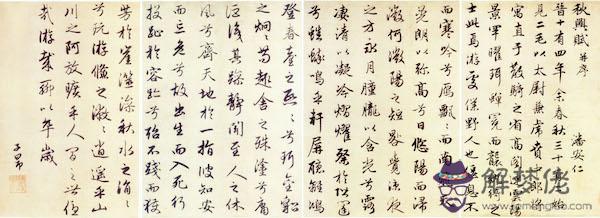 秋興賦 并序 潘安仁
晉十有四年余春秋三十
見二毛以太尉掾兼虎賁中郎將
寓直于散騎之省高閣連雲
景罕曜珥蟬冕而襲
士此焉游處僕野人也偃息不
而寒吟兮鴈飄飄而南
熒朗以彌高兮日悠陽而浸
微何微陽之短晷覺涼夜
之方永月朣朧以含光兮露
淒清以凝冷熠燿粲於階闥
兮蟋蟀鳴乎軒屏聽離鴻
登春臺之熙熙兮珥金貂
之炯炯苟趣舍之殊塗兮庸
詎識其躁靜聞至人之休
風兮齊天地於一指彼知安
而忘危兮故出生而入死行
投趾於容跡兮殆不踐而獲
芳於崖澨澡秋水之涓涓
兮玩游鯈之澈澈逍遙乎山
川之阿放曠乎人間之世優
哉游哉聊以卒歲
子昂
解梦佬